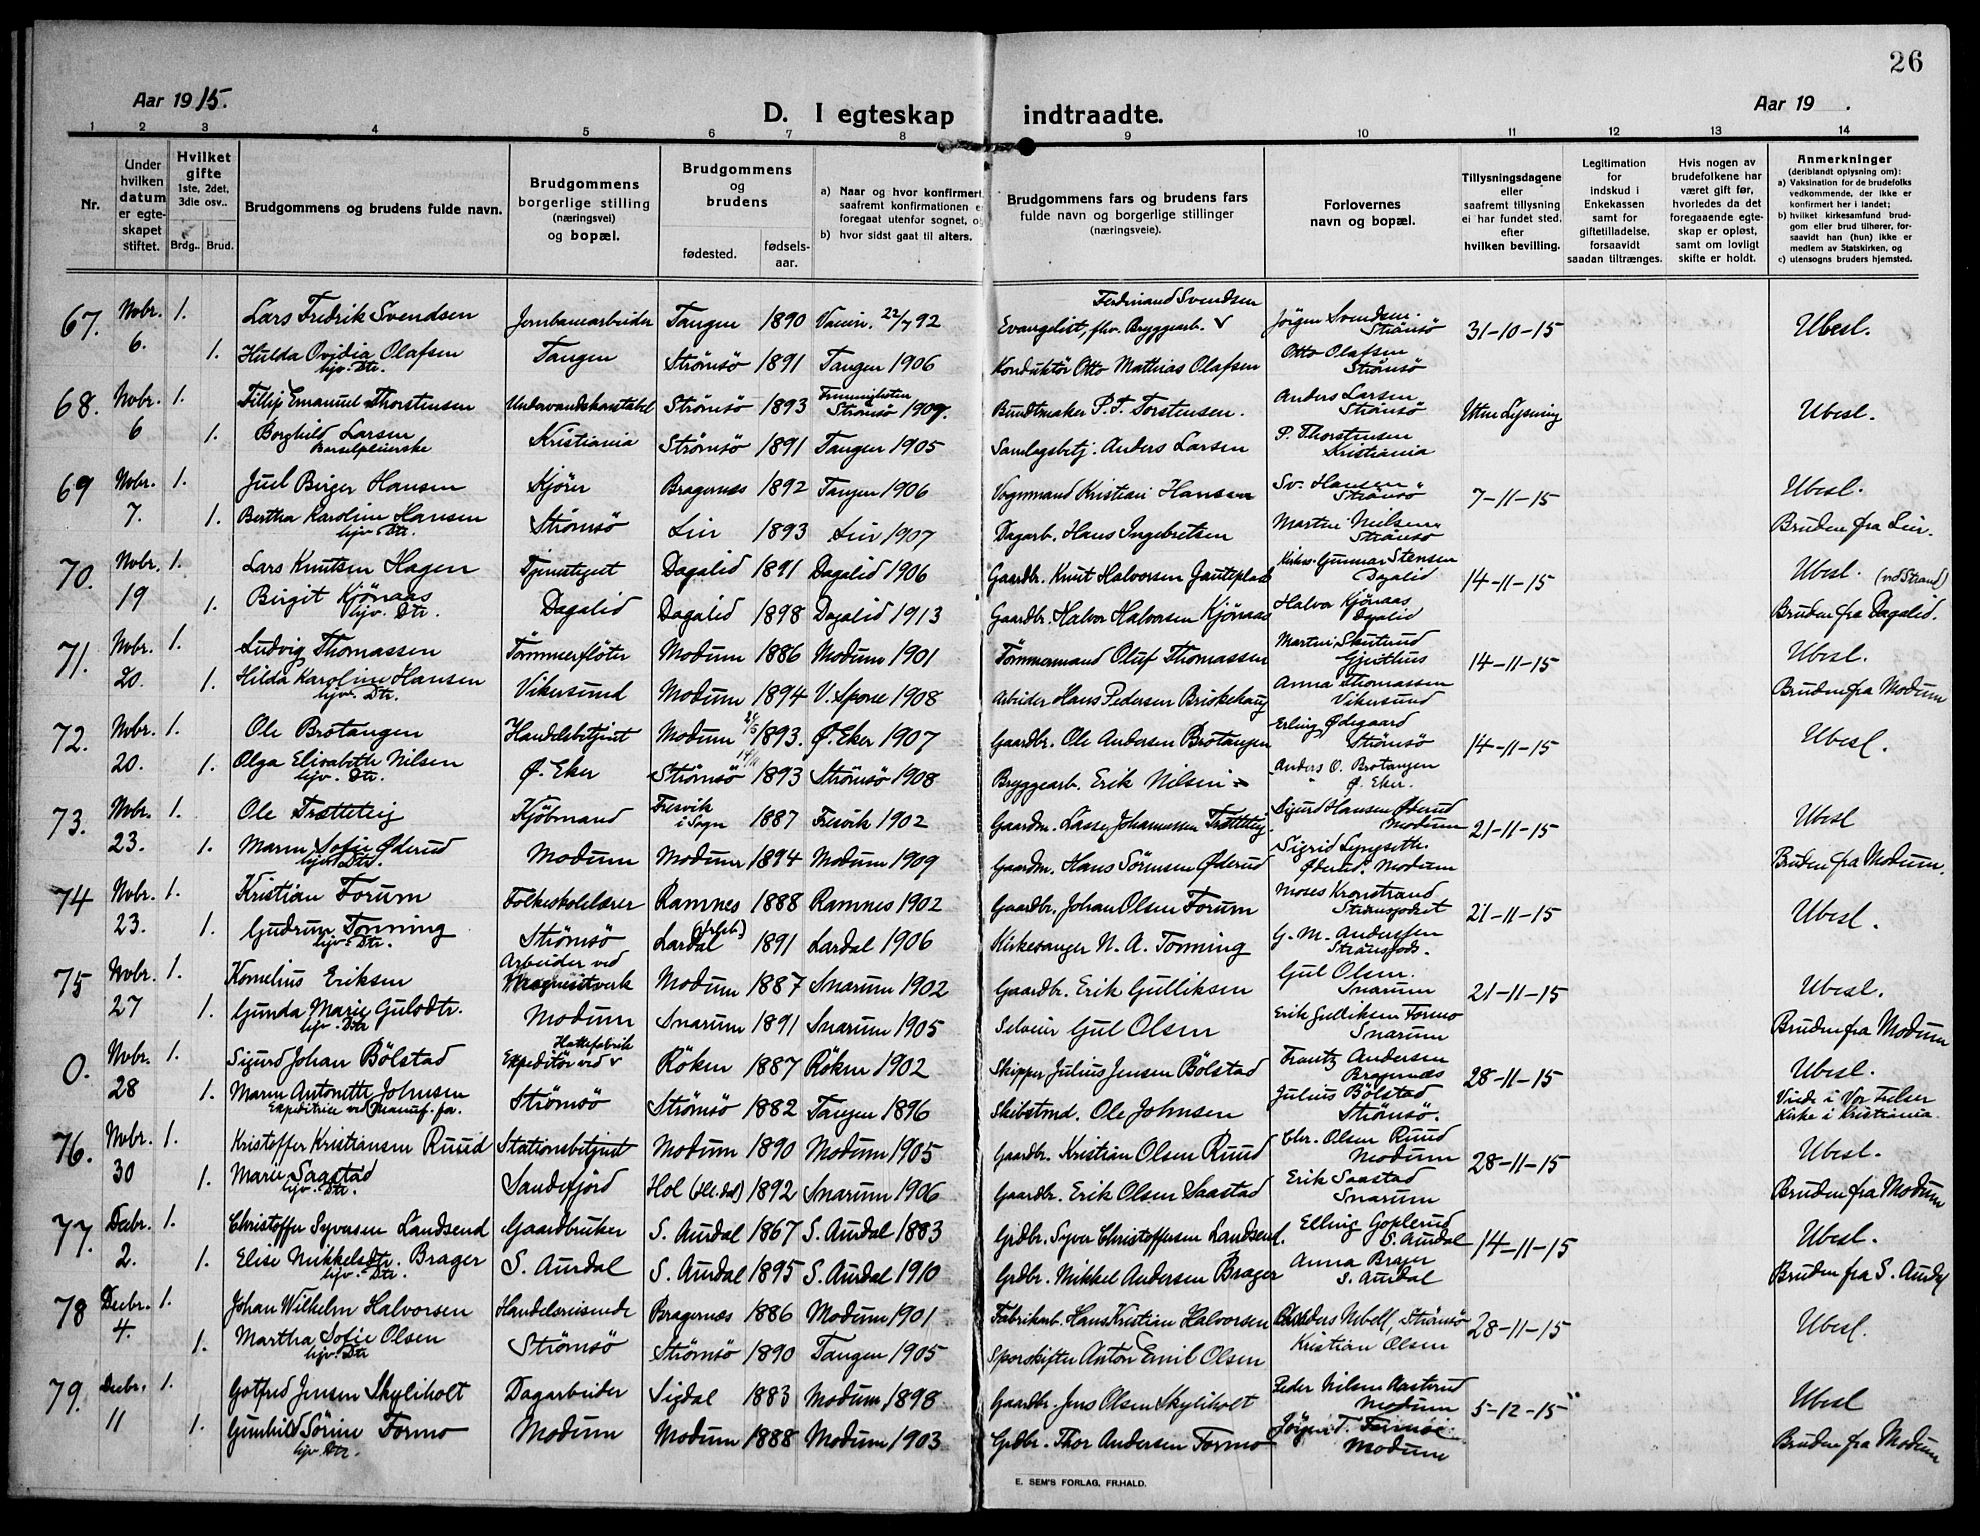 26
Aar 1915.
D. I egteskap indtraadte.
Aar 19 .
1 2 3 4 5 6 7 8 9 10 11 12 13 14
Nr.
Under hvilken datum er egteskapet stiftet.
Hvilket gifte 1ste, 2det, 3die osv..
Brdg. Brud.
Brudgommens og brudens fulde navn.
Brudgommens borgerlige stilling (næringsvei) og bopæl.
Brudgommens og brudens
fødested. fødselsaar.
a) Naar og hvor konfirmert, saafremt konfirmationen er foregaat utenfor sognet, og
b) hvor sidst gaat til alters.
Brudgommens fars og brudens fars fulde navn og borgerlige stillinger (næringsveie).
Forlovernes navn og bopæl.
Tillysningsdagene eller saafremt tillysning ei har fundet sted. efter hvilken bevilling.
Legitimation for indskud i Enkekassen samt for giftetilladelse, forsaavidt saadan tiltrænges.
Hvis nogen av brudefolkene har været gift før, hvorledes da det foregaaende egteskap er opløst, samt om lovligt skifte er holdt.
Anmerkninger (deriblandt oplysning om):
a) Vaksination for de brudefolks vedkommende, der ikke er konfirmert her i landet;
b) hvilket kirkesamfund brudgom eller brud tilhører, forsaavidt han (hun) ikke er medlem av Statskirken, og
c) utensogns bruders hjemsted.
67. Nvbr. 1. Lars Fredrik Svendsen Jernbanearbeider Tangen 1890 Vaccin. 22/7 92 Ferdinand Svendsen Evangelist, fhv. Bryggearb. Jörgen Svendsen Strömsö 31-10-15 Ubesl.
6. 1. Hulda Ovidia Olafsen hjv. Dtr. Tangen Strömsö 1891 Tangen 1906 Konduktör Otto Mathias Olafsen Otto Olafsen Strömsö
68. Nvbr. 1. Fillip Emanuel Thorstensen Undervandskonstabel Strömsö 1893 Frimenigheten Strömsö 1907. Bundtmaker P. T. Torstensen. Anders Larsen Strömsö Uten Lysning Ubesl.
6 1. Borghild Larsen Barselpleierske Kristiania Strömsö 1891 Tangen 1905 Samlagsbetj. Anders Larsen P. Thorstensen Kristiania
69 Nvbr. 1. Juel Birger Hansen Kjörer Bragernæs 1892 Tangen 1906 Vognmand Kristian Hansen Sv. Hansen Strömsö 7-11-15 Ubesl.
7. 1. Bertha Karoline Hansen hjv. Dtr. Strömsö Lier 1893 Lier 1907 Dagarb. Hans Ingebretsen Martin Nilsen Strömsö Bruden fra Lier.
70. Nvbr. 1. Lars Knutsen Hagen Tjenstegut Dagalid 1891 Dagalid 1906 Gaardbr. Knut Halvorsen Gunnar Stensen Dagalid 14-11-15 Ubesl. (vd Strand)
19 1. Birgit Kjönaas hjv. Dtr. Dagalid Dagalid 1898 Dagalid 1913 Gaardbr. Halvor Halvorsen Kjönaas Halvor Kjönaas Dagalid Bruden fra Dagalid.
71. Nvbr. 1. Ludvig Thomassen Tömmerflöter Modum 1886 Modum 1901 Tömmermand Oluf Thomassen Martin Skutrud Gjeithus 14-11-15 Ubesl.
20. 1. Hilda Karoline Hansen hjv. Dtr. Vikersund Modum 1894 V. Spone 1908 Arbeider Hans Pedersen Briskehaug Anna Thomassen Vikersund Bruden fra Modum
72. Nvbr. 1. Ole Brotangen Handelsbetjent Modum 1893. Ø. Eker 1907 Gaardbr. Ole Andersen Brotangen Erling Ødegaard Strömsö 14-11-15 Ubesl.
20. 1. Olga Elisabeth Nilsen hjv. Dtr. Ø. Eker Strömsö 1893 Strömsö 1908 Bryggearb. Erik Nilsen Anders O. Brotangen Ø. Eker.
73. Nvbr. 1. Ole Trætteteig Kjöbmand Fresvik i Sogn 1887 Fresvik 1902 Gaardm. Lasse Johannessen Trætteteig. Sigurd Hansen Øderud Modum 21-11-15 Ubesl
23. 1. Maren Sofie Øderud hjv. Dtr. Modum Modum 1894 Modum 1909 Gaardm. Hans Sörensen Øderud Sigrid Lyngseth. Øderud. Modum Bruden fra Modum.
74 Nvbr. 1. Kristian Forum Folkeskolelærer Ramnes 1888 Ramnes 1902 Gaardbr. Johan Olsen Forum Moses Kronstrand Strömsgodset 21-11-15 Ubesl.
23. 1. Gudrun Tonning hjv. Dtr. Strömsö Lardal 1891 Lardal 1906 Kirkesanger N. A. Tonning G. M. Anderssen Strömsgods.
75 Nvbr. 1. Kornelius Eriksen Arbeider ved Magnesitverk Modum 1887 Snarum 1902 Gaardbr. Erik Gulliksen Gul Olsen. Snarum 21-11-15 Ubesl.
27 1. Gunda Marie Gulsdtr. hjv. Dtr Modum Snarum 1891 Snarum 1905 Selveier Gul Olsen Erik Gulliksen Formo Snarum Bruden fra Modum
0. Nvbr. 1. Sigurd Johan Bölstad Expeditör ved Hattefabrik Röken 1887 Röken 1902 Skipper Julius Jensen Bölstad Frantz Andersen Bragernæs 28-11-15 Ubesl.
28 1. Maren Antonette Johnsen Expeditrice ved Manuf. fa. Strömsö Strömsö 1882 Tangen 1896 Skibstmd. Ole Johnsen Julius Bölstad Strömsö. Viede i Vor Frelser Kirke i Kristiania.
76. Nvbr. 1. Kristoffer Kristiansen Ruud Stationsbetjent Modum 1890 Modum 1905 Gaardbr. Kristian Olsen Ruud Chr. Olsen Ruud Modum 28-11-15 Ubesl.
30 1. Marie Saastad hjv. Dtr. Sandefjord Hol (Hlldal) 1892 Snarum 1906 Gaardbr. Erik Olsen Saastad Erik Saastad Snarum Bruden fra Modum
77. Decbr. 1. Christoffer Syversen Landsend Gaardbruker S. Aurdal 1867 S. Aurdal 1883 Grdbr. Syver Christoffersen Landsend. Elling Goplerud S. Aurdal 14-11-15 Ubesl.
2. 1. Elise Mikkelsdtr. Brager hjv. Dtr. S. Aurdal S. Aurdal 1895 S. Aurdal 1910 Grdbr. Mikkel Andersen Brager Anna Brager S. Aurdal Bruden fra S. Aurdal
78 Decbr. 1. Johan Wilhelm Halvorsen Handelsreisende Bragernæs 1886 Modum 1901 Fabrikarb. Hans Kristian Halvorsen Strömsö 28-11-15 Ubesl.
4. 1. Martha Sofie Olsen hjv. Dtr Strömsö Strömsö 1890 Tangen 1905 Sporskifter Anton Emil Olsen Kristian Olsen
79. Decbr. 1. Gotfred Jensen Skyliholt Dagarbeider Sigdal 1883 Modum 1898 Gaardbr. Jens Olsen Skyliholt Peder Nilsen Aasterud Modum 5-12-15 Ubesl
11 1. Gunhild Sörine Formo hjv. Dtr. Modum Modum 1888 Modum 1903 Grdbr. Thor Andersen Formo Jörgen T. Formo Modum Bruden fra Modum
E. SEM'S FORLAG, FR.HALD.